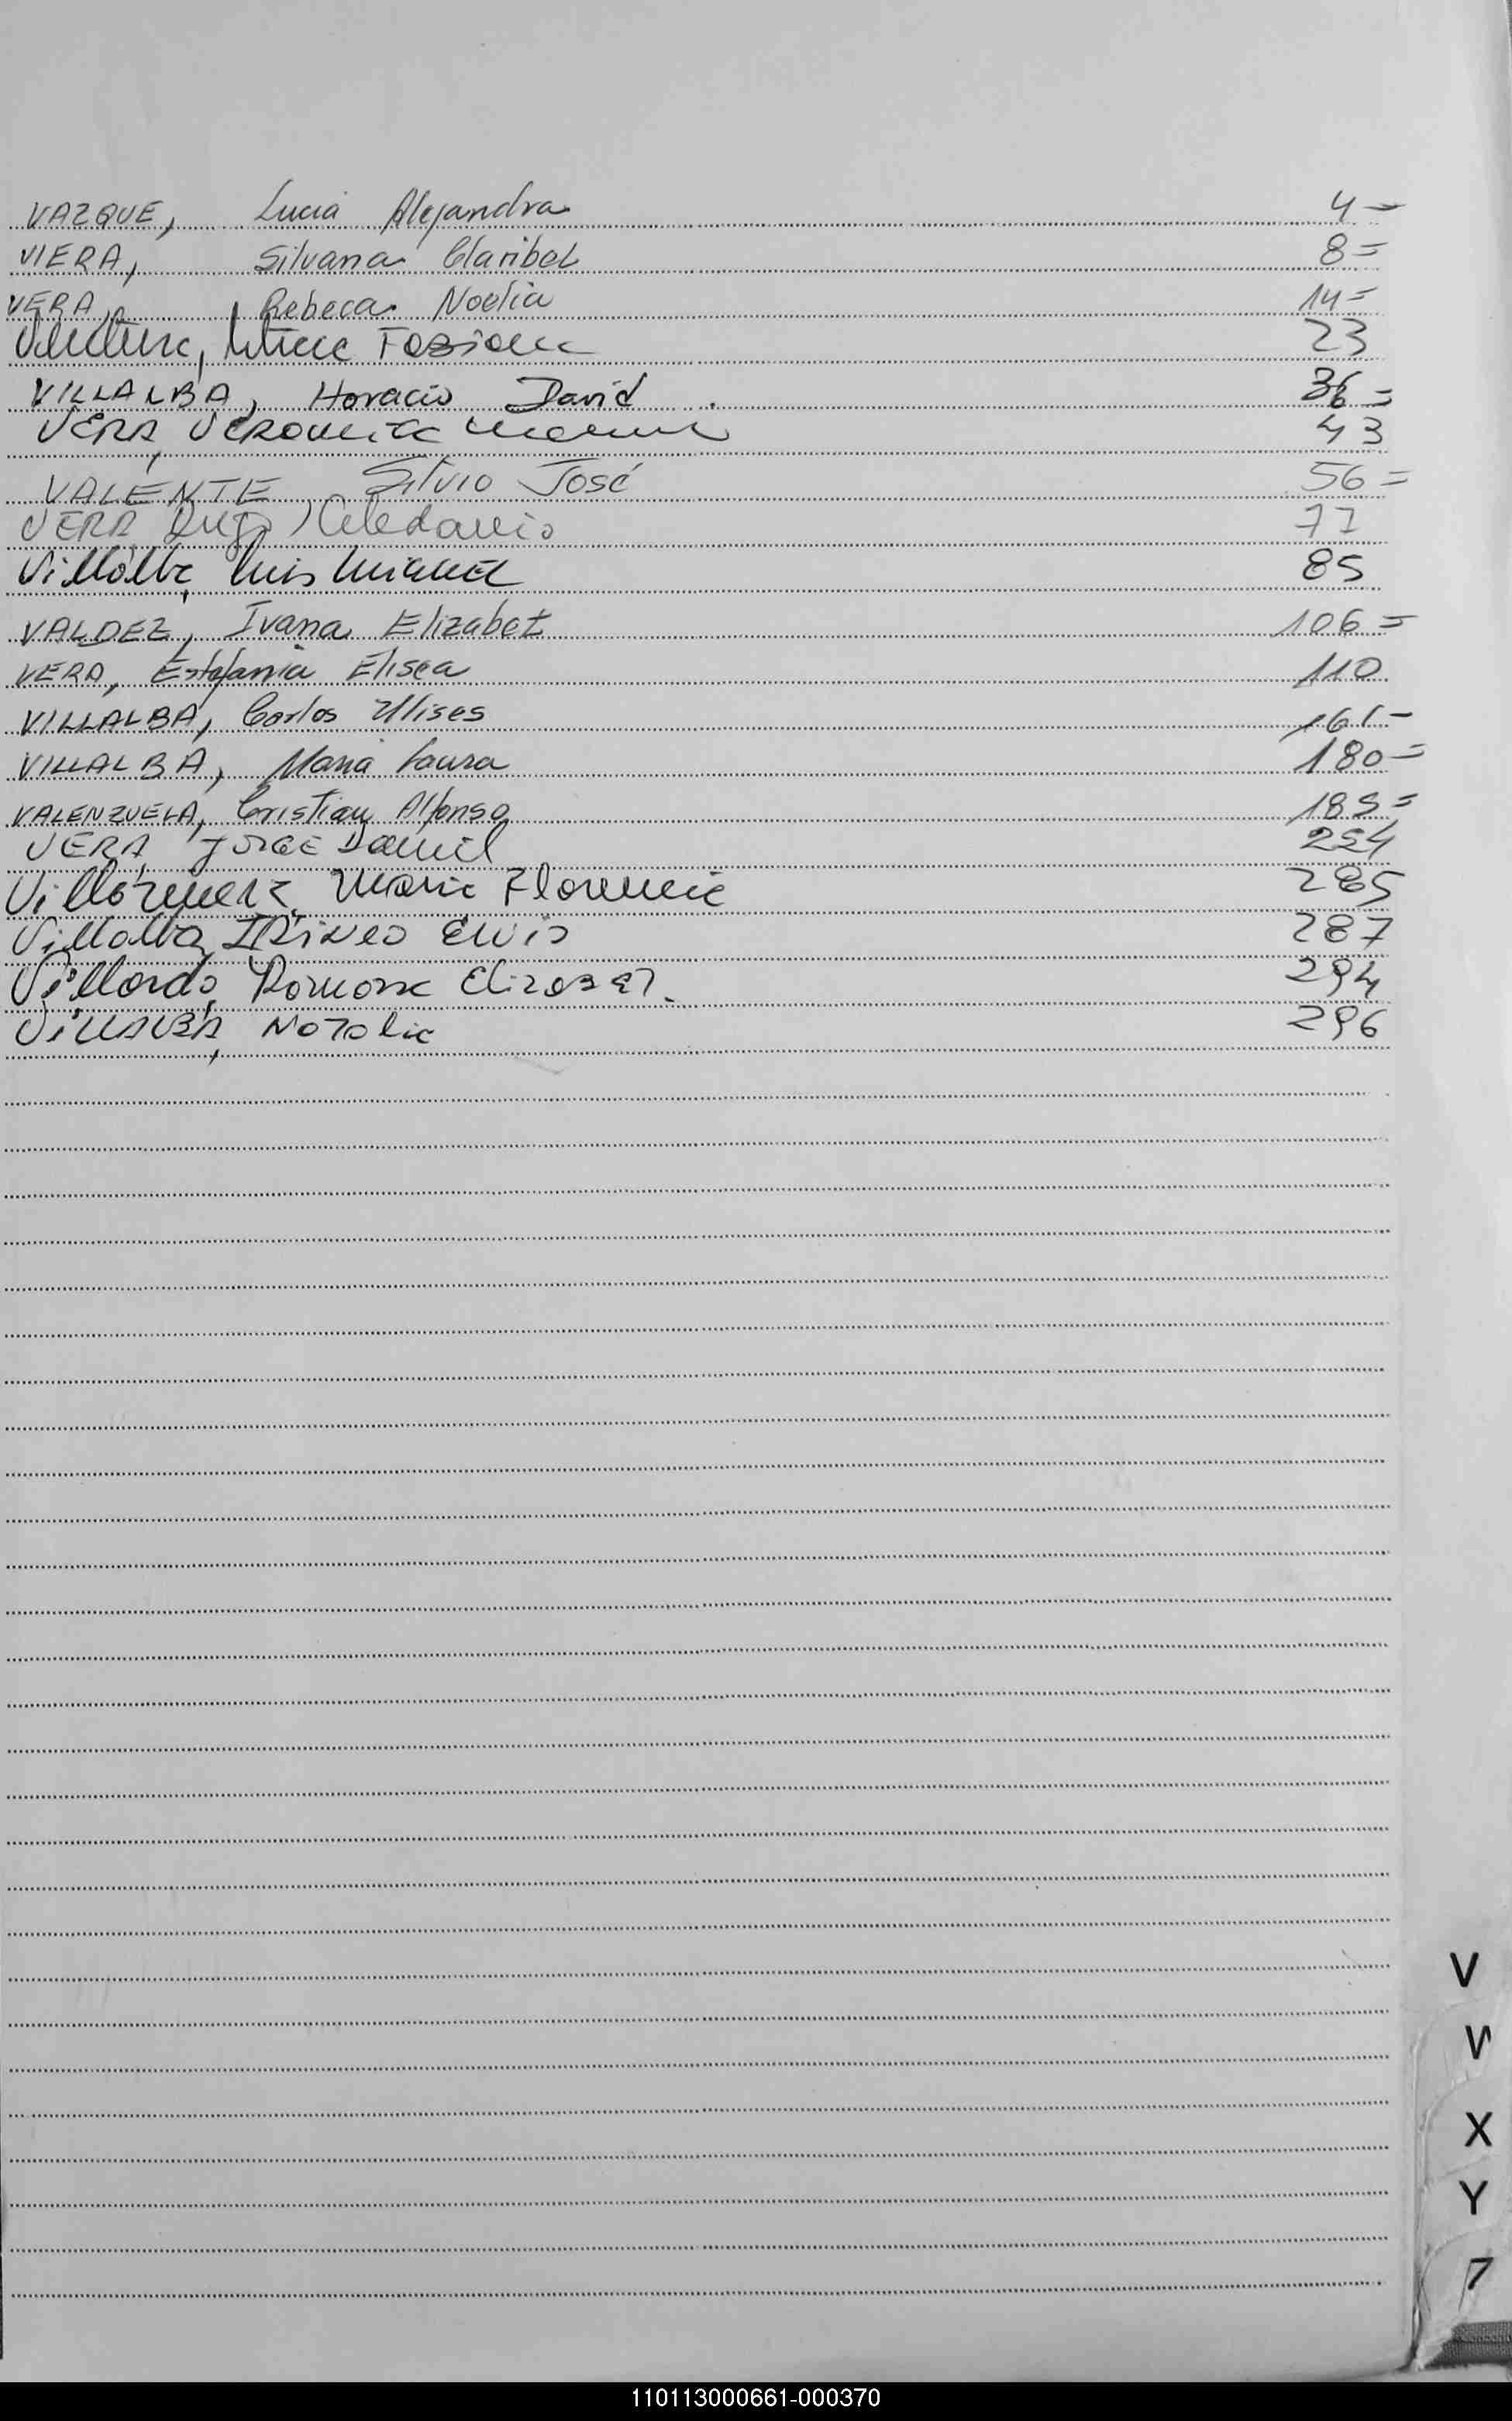 VAZQUE, Lucia Alejandra 4-
VIERA, Silvana Claribel 8=
VERA, Rebeca Noelia 14=
Fabiana 23
VILLALBA, Horacio David 36=
VERA, VERONICA 43
VALENTE, Silvio José 56=
VERA Celedonio 77
Villalba, Luis Miguel 85
VALDEZ, Ivana Elizabet 106=
VERA, Estefania Elisea 110
VILLALBA, Carlos Ulises 161-
VILLALBA, Maria Laura 180=
VALENZUELA, Cristian Alfonso 189=
VERA, JORGE Daniel 254
Maria Florencia 285
Villalba, IRINEO Elvio 287
Villordo, Ramona Elizabet. 294
VILLALBA, Natalia 296
V
W
X
Y
Z
110113000661-000370